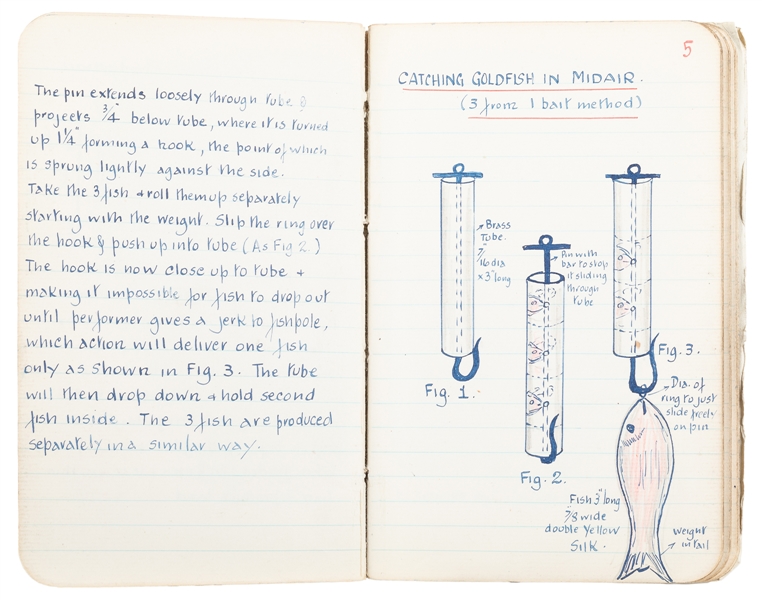 The pin extends loosely through tube &
projects 3/4" below tube, where it is turned
up 1 1/4" forming a hook, the point of which
is sprung lightly against the side.
Take the 3 fish & roll them up separately
starting with the weight. Slip the ring over
the hook & push up into tube (As Fig 2.)
The hook is now close up to tube &
making it impossible for fish to drop out
until performer gives a jerk to fishpole,
which action will deliver one fish
only as shown in Fig. 3. The tube
will then drop down & hold second
fish inside. The 3 fish are produced
separately in a similar way.
5
CATCHING GOLDFISH IN MIDAIR.
(3 from 1 bait method)
Brass
Tube.
7/16 dia
x 3" long
Fig. 1.
Pin with
bar to stop
it sliding
through
tube
Fig. 2.
Fig. 3.
Dia. of
ring to just
slide freely
on pin
Fish 3" long
7/8 wide
double Yellow
Silk.
weight
in tail